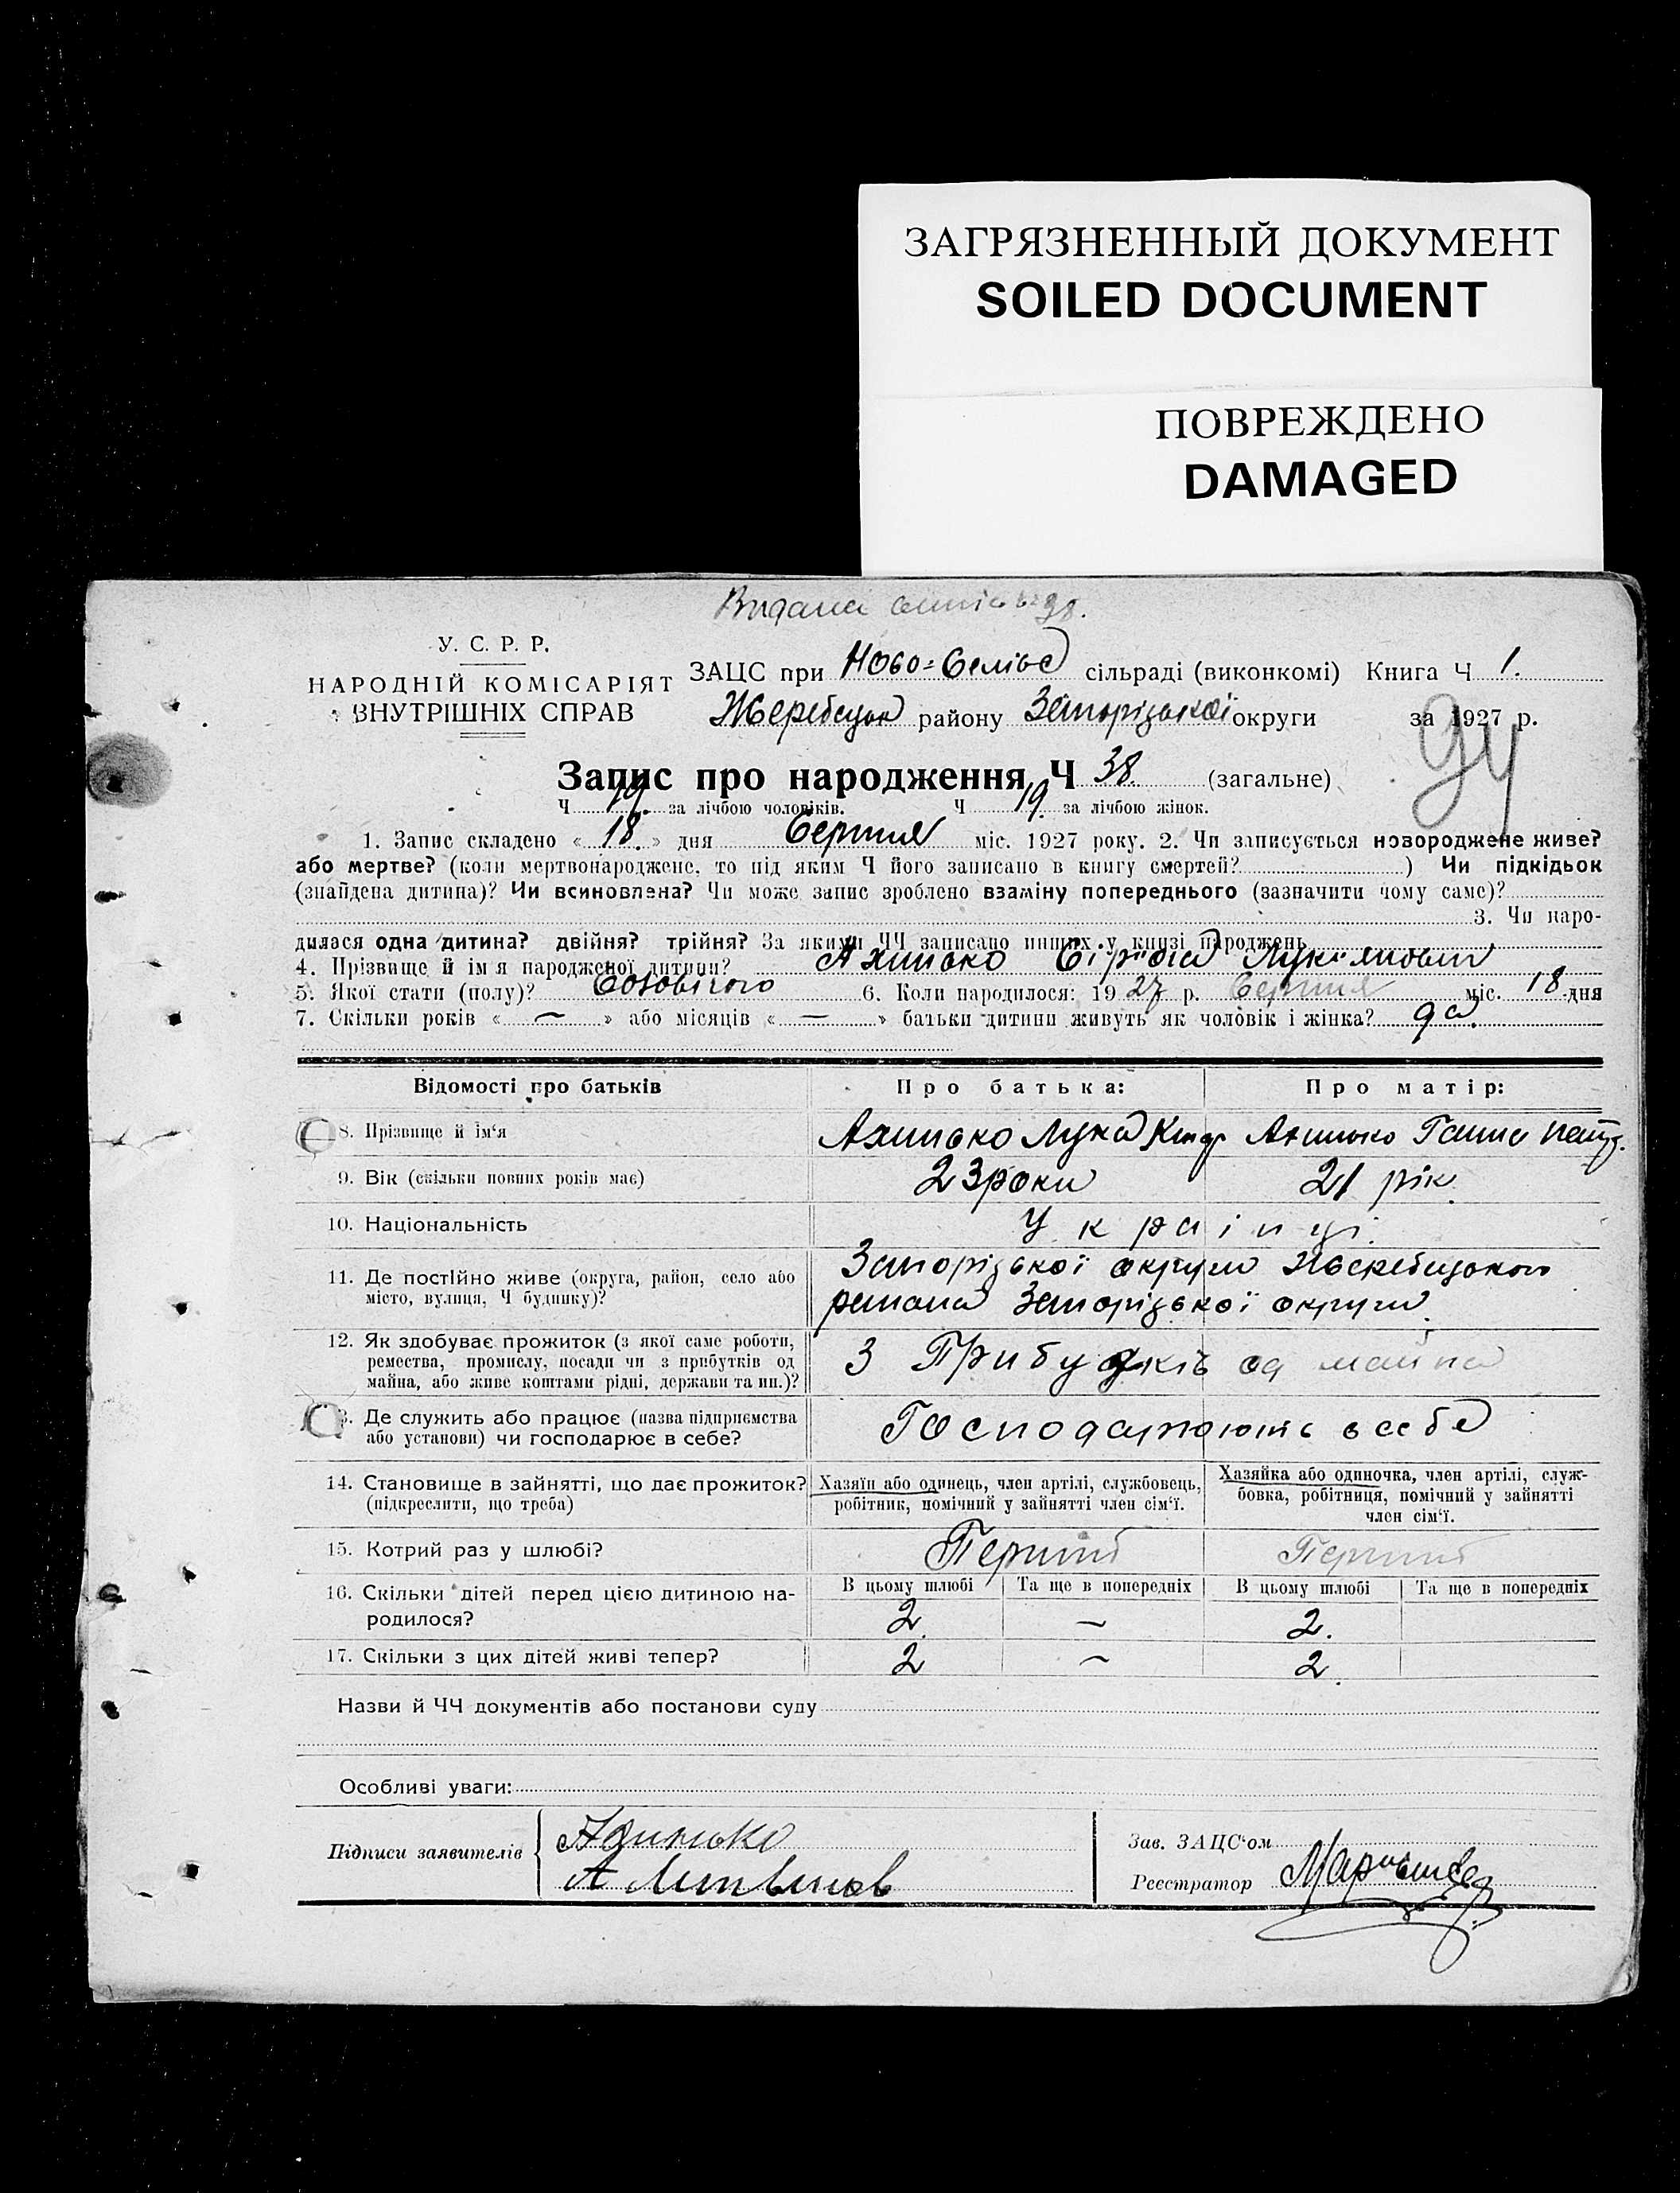 ЗАГРЯЗНЕННЫЙ ДОКУМЕНТ
SOILED DOCUMENT
ПОВРЕЖДЕНО
DAMAGED
Видана
У. С. Р. Р.
НАРОДНІЙ КОМІСАРІЯТ
ВНУТРІШНІХ СПРАВ
ЗАЦС при сільраді (виконкомі) Книга Ч 1.
району Запорізької округи за 1927 р.
Запис про народження Ч 38 (загальне)
Ч 19 за лічбою чоловіків. Ч 19 за лічбою жінок.
1. Запис складено « 18 » дня Серпня міс. 1927 року. 2. Чи записується новороджене живе?
або мертве? (коли мертвонароджене, то під яким Ч його записано в книгу смертей? ) Чи підкідьок
(знайдена дитина)? Чи всиновлена? Чи може запис зроблено взаміну попереднього (зазначити чому саме)?
3. Чи наро-
дилася одна дитина? двійня? трійня? За якими ЧЧ записано инших у книзі народжень
4. Прізвище й ім'я народженої дитини?
5. Якої стати (полу)? 6. Коли народилося: 1927 р. Серпня міс. 18 дня
7. Скільки років « — » або місяців « — » батьки дитини живуть як чоловік і жінка?
Відомості про батьків Про батька: Про матір:
8. Прізвище й ім'я Лука Ганна
9. Вік (скільки повних років має) 23 роки 21 рік
10. Національність Українці
11. Де постійно живе (округа, район, село або
місто, вулиця, Ч будинку)? Запорізької округи
Запорізької округи
12. Як здобуває прожиток (з якої саме роботи,
ремества, промислу, посади чи з прибутків од
майна, або живе коштами рідні, держави та ин.)? З Прибудків од майна
13. Де служить або працює (назва підприємства
або установи) чи господарює в себе? Господарюють в себе
14. Становище в зайнятті, що дає прожиток?
(підкреслити, що треба)
Хазяїн або одинець, член артілі, службовець,
робітник, помічний у зайнятті член сім'ї.
Хазяйка або одиночка, член артілі, служ-
бовка, робітниця, помічний у зайнятті
член сім'ї.
15. Котрий раз у шлюбі? Перший Перший
В цьому шлюбі Та ще в попередніх В цьому шлюбі Та ще в попередніх
16. Скільки дітей перед цією дитиною на-
родилося? 2. — 2.
17. Скільки з цих дітей живі тепер? 2 — 2.
Назви й ЧЧ документів або постанови суду
Особливі уваги:
Підписи заявителів
Зав. ЗАЦС'ом
Реєстратор